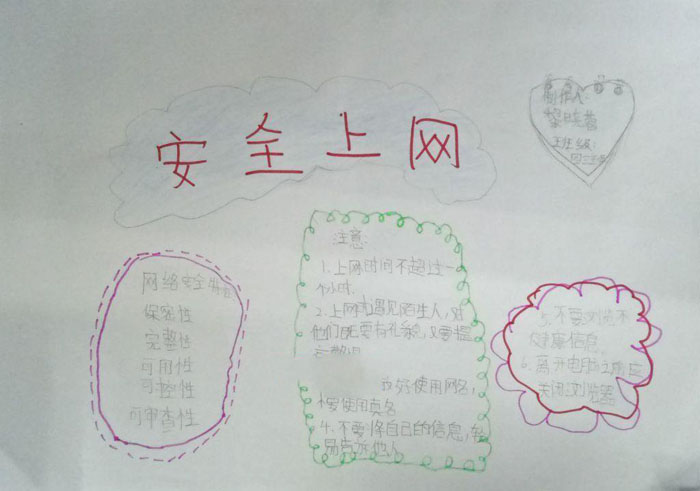 安全上网
制作人:
班级:
网络安全特征
保密性
完整性
可用性
可控性
可审查性
注意:
1.上网时间不超过一
个小时.
2.上网时遇见陌生人,对
他们既要有礼貌,又要提
最好使用网名,
不要使用真名
4.不要将自己的信息,轻
易告诉他人
5.不要浏览不
健康信息
6.离开电脑立即应
关闭浏览器